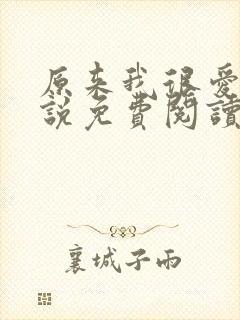 原来我很爱
說免費閱讀
襄城子雨